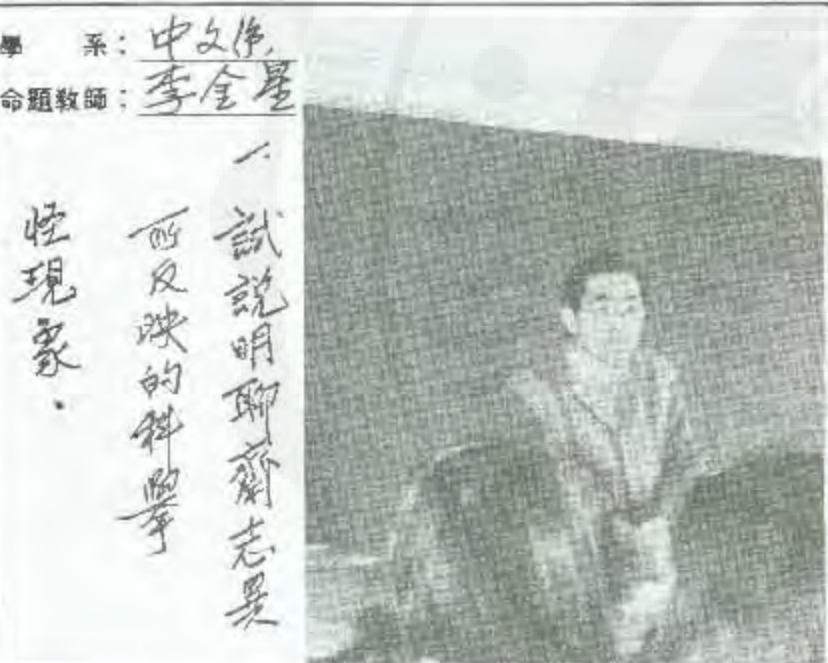 學 系：中文係
命題教師：李金星
一、試說明聊齋志異
所反映的科舉
怪現象．